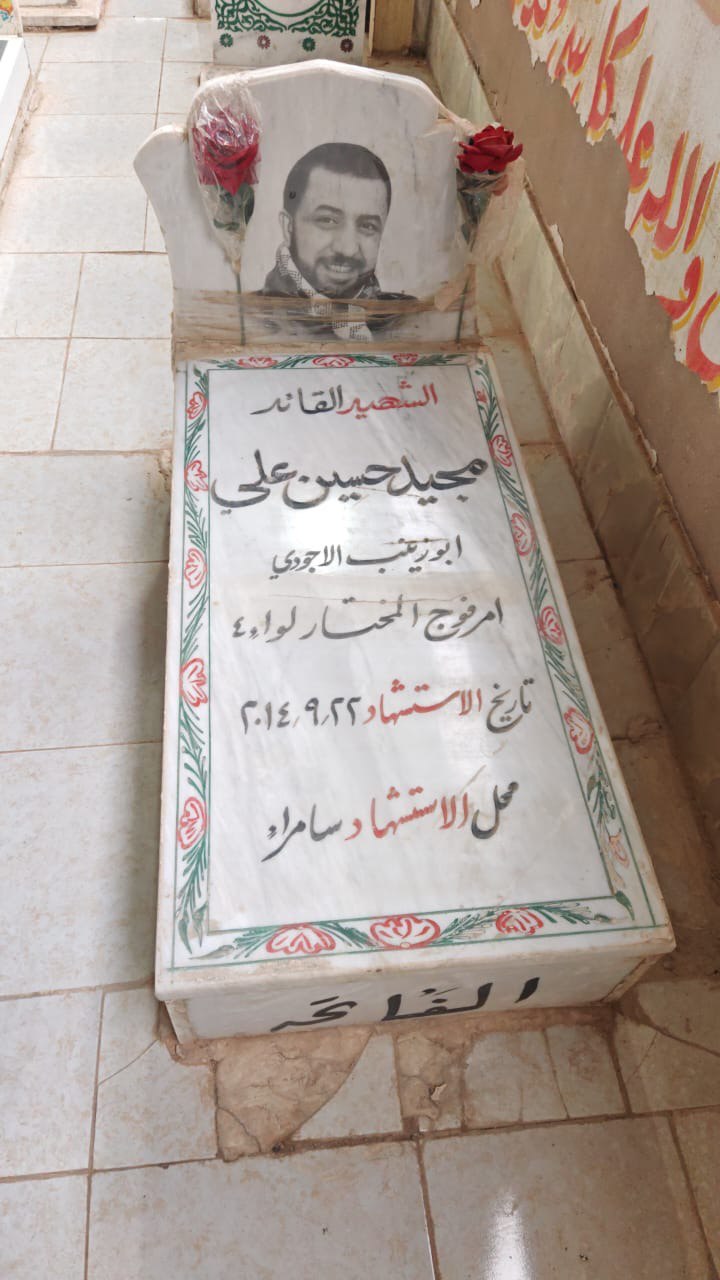 الشهيد القائد
مجيد حسين علي
ابو زينب الاجودي
امر فوج المختار لواء ٤
تاريخ الاستشهاد ٢٢/٩/٢٠١٤
محل الاستشهاد سامراء
الفاتحة
الله على كل